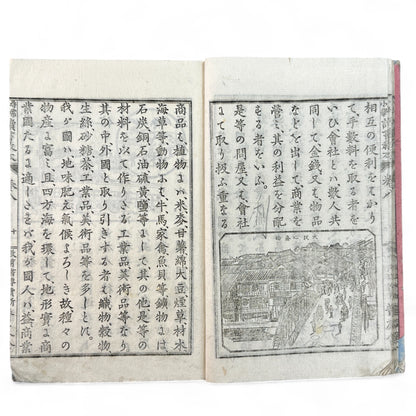 相互の便利をはかり
て手數料を取る者を
いひ會社とハ數人共
同して金錢又ハ物品
などを出して商業を
營ミ其の利益を分配
する者をいふ。
是等の問屋又ハ會社
にて取り扱ふ重なる
商品ハ植物にてハ米麥甘藷綿大豆煙草材木
海草等動物にてハ牛馬家禽魚貝等鑛物にてハ
石炭銅石油硫黄鹽等にして其の他是等の
材料を以て作りたる工業品美術品等なり
其の中外國と取り引きする者ハ織物穀物
生絲砂糖茶工業品美術品等を多しとに。
我が國ハ地味肥え氣候よろしき故種々の
物産に富ミ且四方海を環して地形實に商
業國たるに適しさればハ我が國人ハ益商業